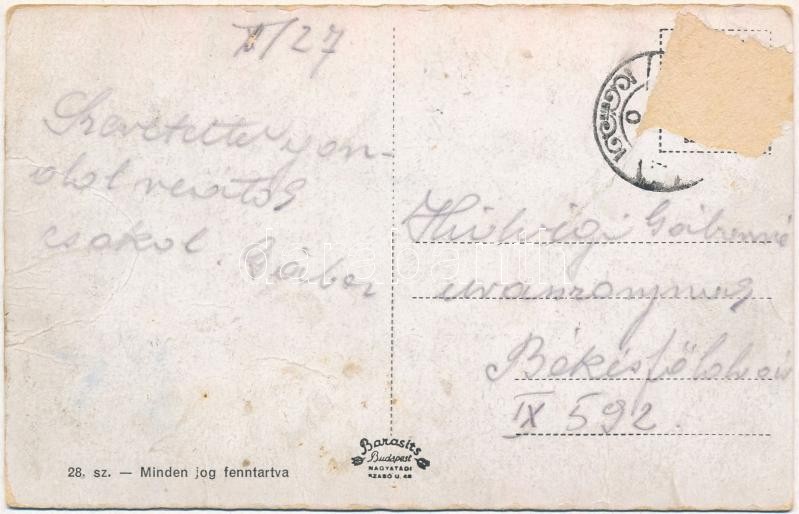 V/27
Szeretettel gon-
dol reátok
csokol Gábor
Hidvégi Gáborné
úrasszonynak
Békésföldvár
IX 592.
28. sz. — Minden jog fenntartva
Barasits
Budapest
NAGYATÁDI
SZABÓ U. 48